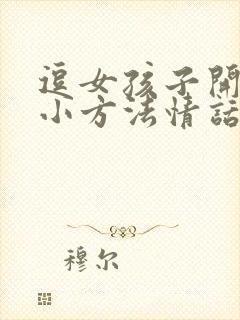 逗女孩子開
小方法情話
穆尔